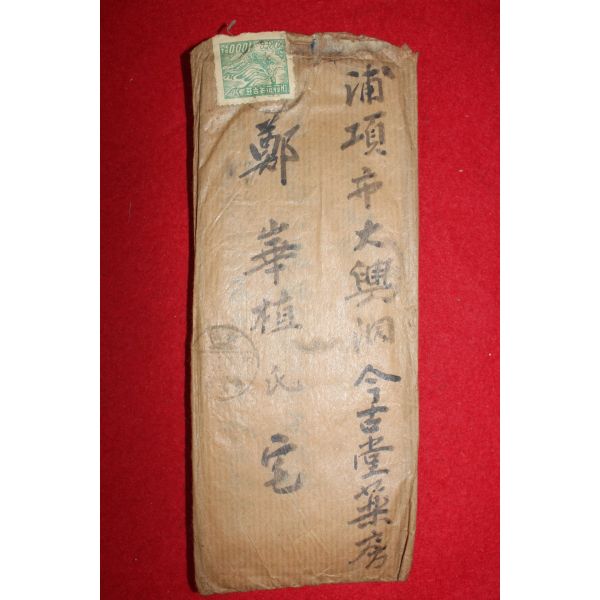 浦項市大興洞今古堂薬房
鄭崋植氏宅
1000